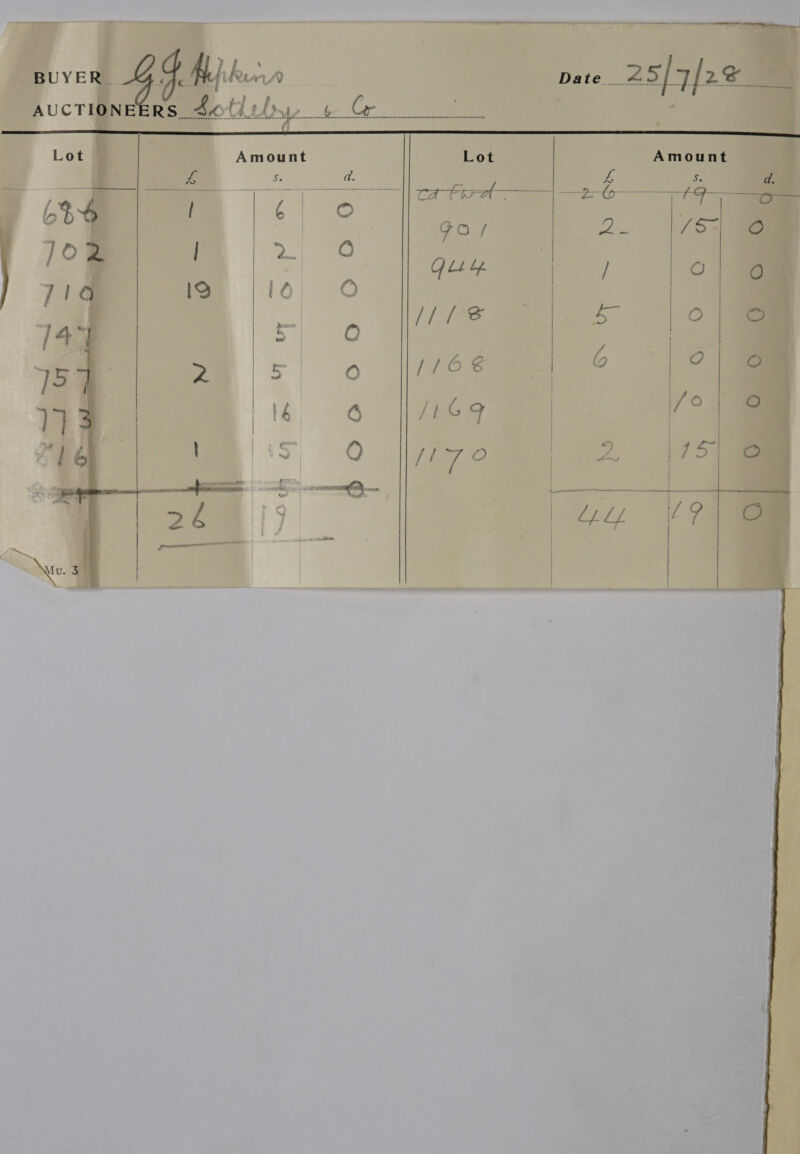 BUYER G. J.
AUCTIONEERS Sotheby & Co
Date 25/7/28
Lot Amount
£ s. d.
686 1 6 0
702 1 2 0
710 19 10 0
747 5 0
757 2 5 0
773 16 0
816 1 15 0
26 19
Mu. 3
Lot Amount
£ s. d.
Cd Fwd. 26 19 0
901 2 15 0
944 1 0 0
1118 5 0 0
1168 6 0 0
1169 10 0
1170 2 15 0
44 19 0